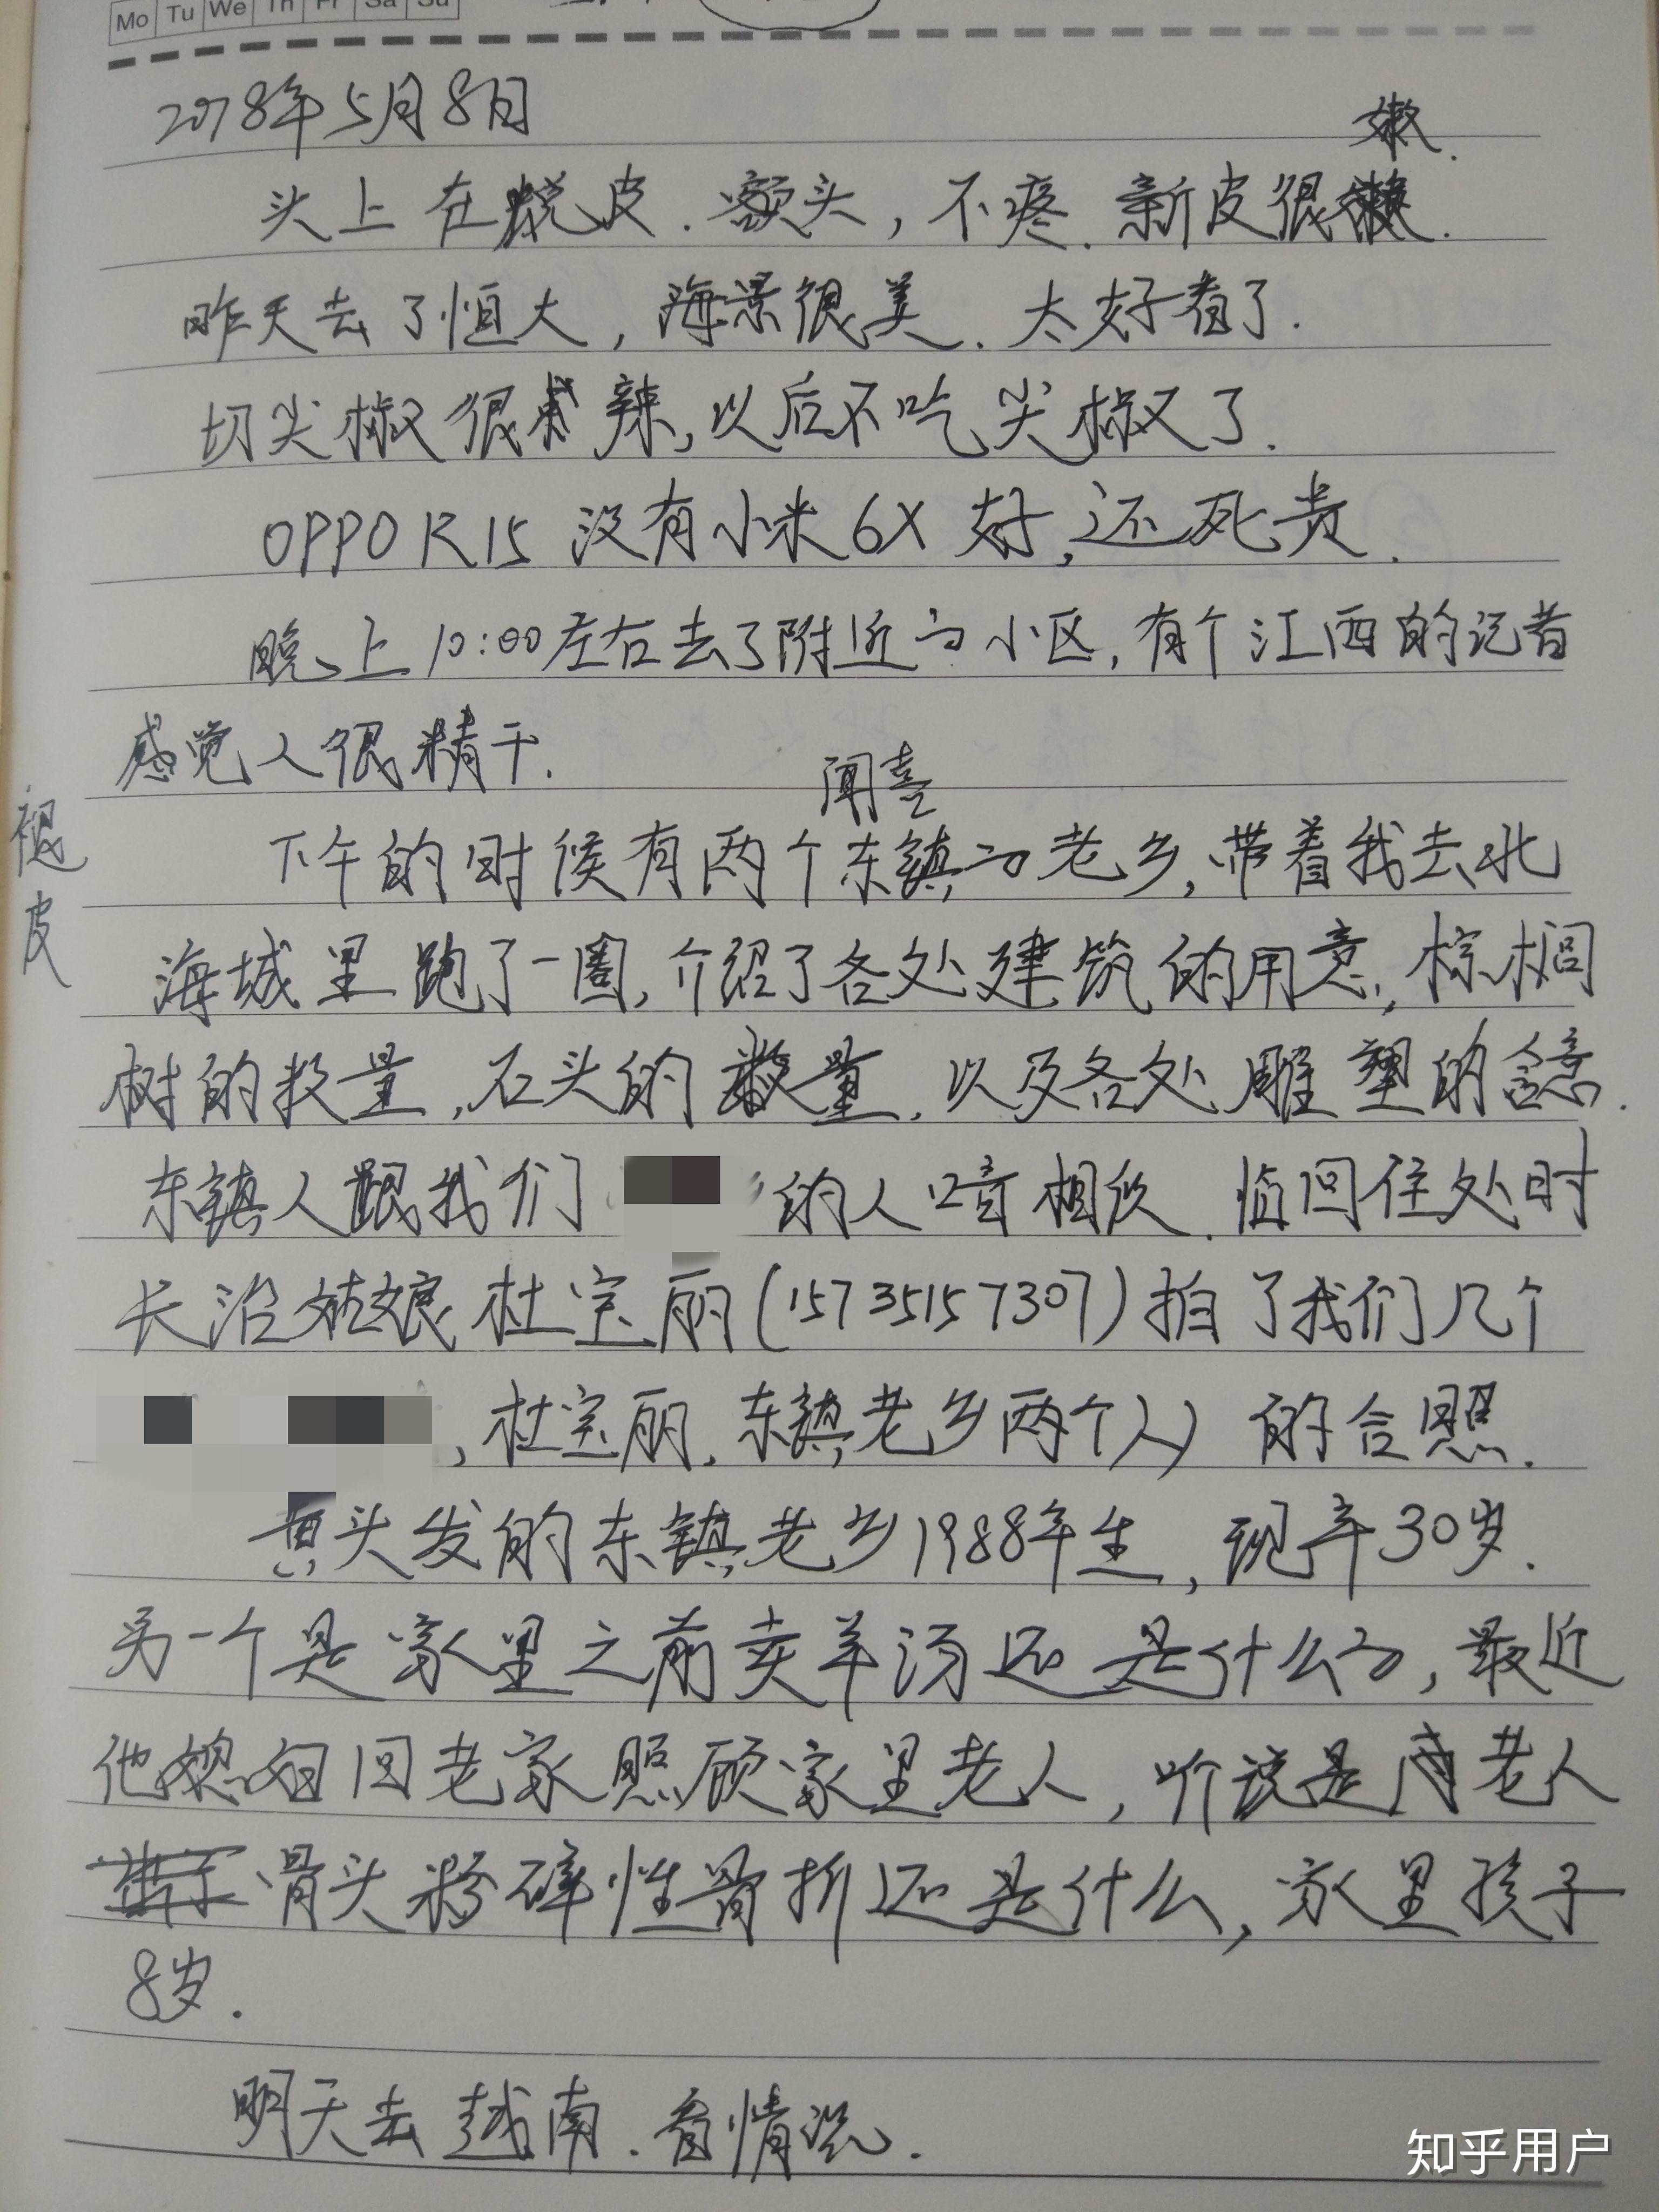 Mo Tu We Th Fr Sa Su
2018年5月8日
嫩.
头上在脱皮.额头,不疼.新皮很嫩.
昨天去了恒大,海景很美.太好看了.
切尖椒很辣,以后不吃尖椒了.
OPPO R15 没有小米6X好,还死贵.
晚上10:00左右去了附近的小区,有个江西的记者
感觉人很精干.
闻喜
下午的时候有两个东镇的老乡,带着我去北
褪皮
海城里跑了一圈,介绍了各处建筑的用意,棕榈
树的数量,石头的数量,以及各处雕塑的含意.
东镇人跟我们 的人口音相似. 回住处时
长治姑娘杜宝丽(15735157307)拍了我们几个
,杜宝丽.东镇老乡两个人)的合照.
黄头发的东镇老乡1988年生,现年30岁.
另一个是家里之前卖羊汤还是什么的,最近
他媳妇回老家照顾家里老人,听说是 老人
骨头粉碎性骨折还是什么,家里孩子
8岁.
明天去越南.看情况.
知乎用户